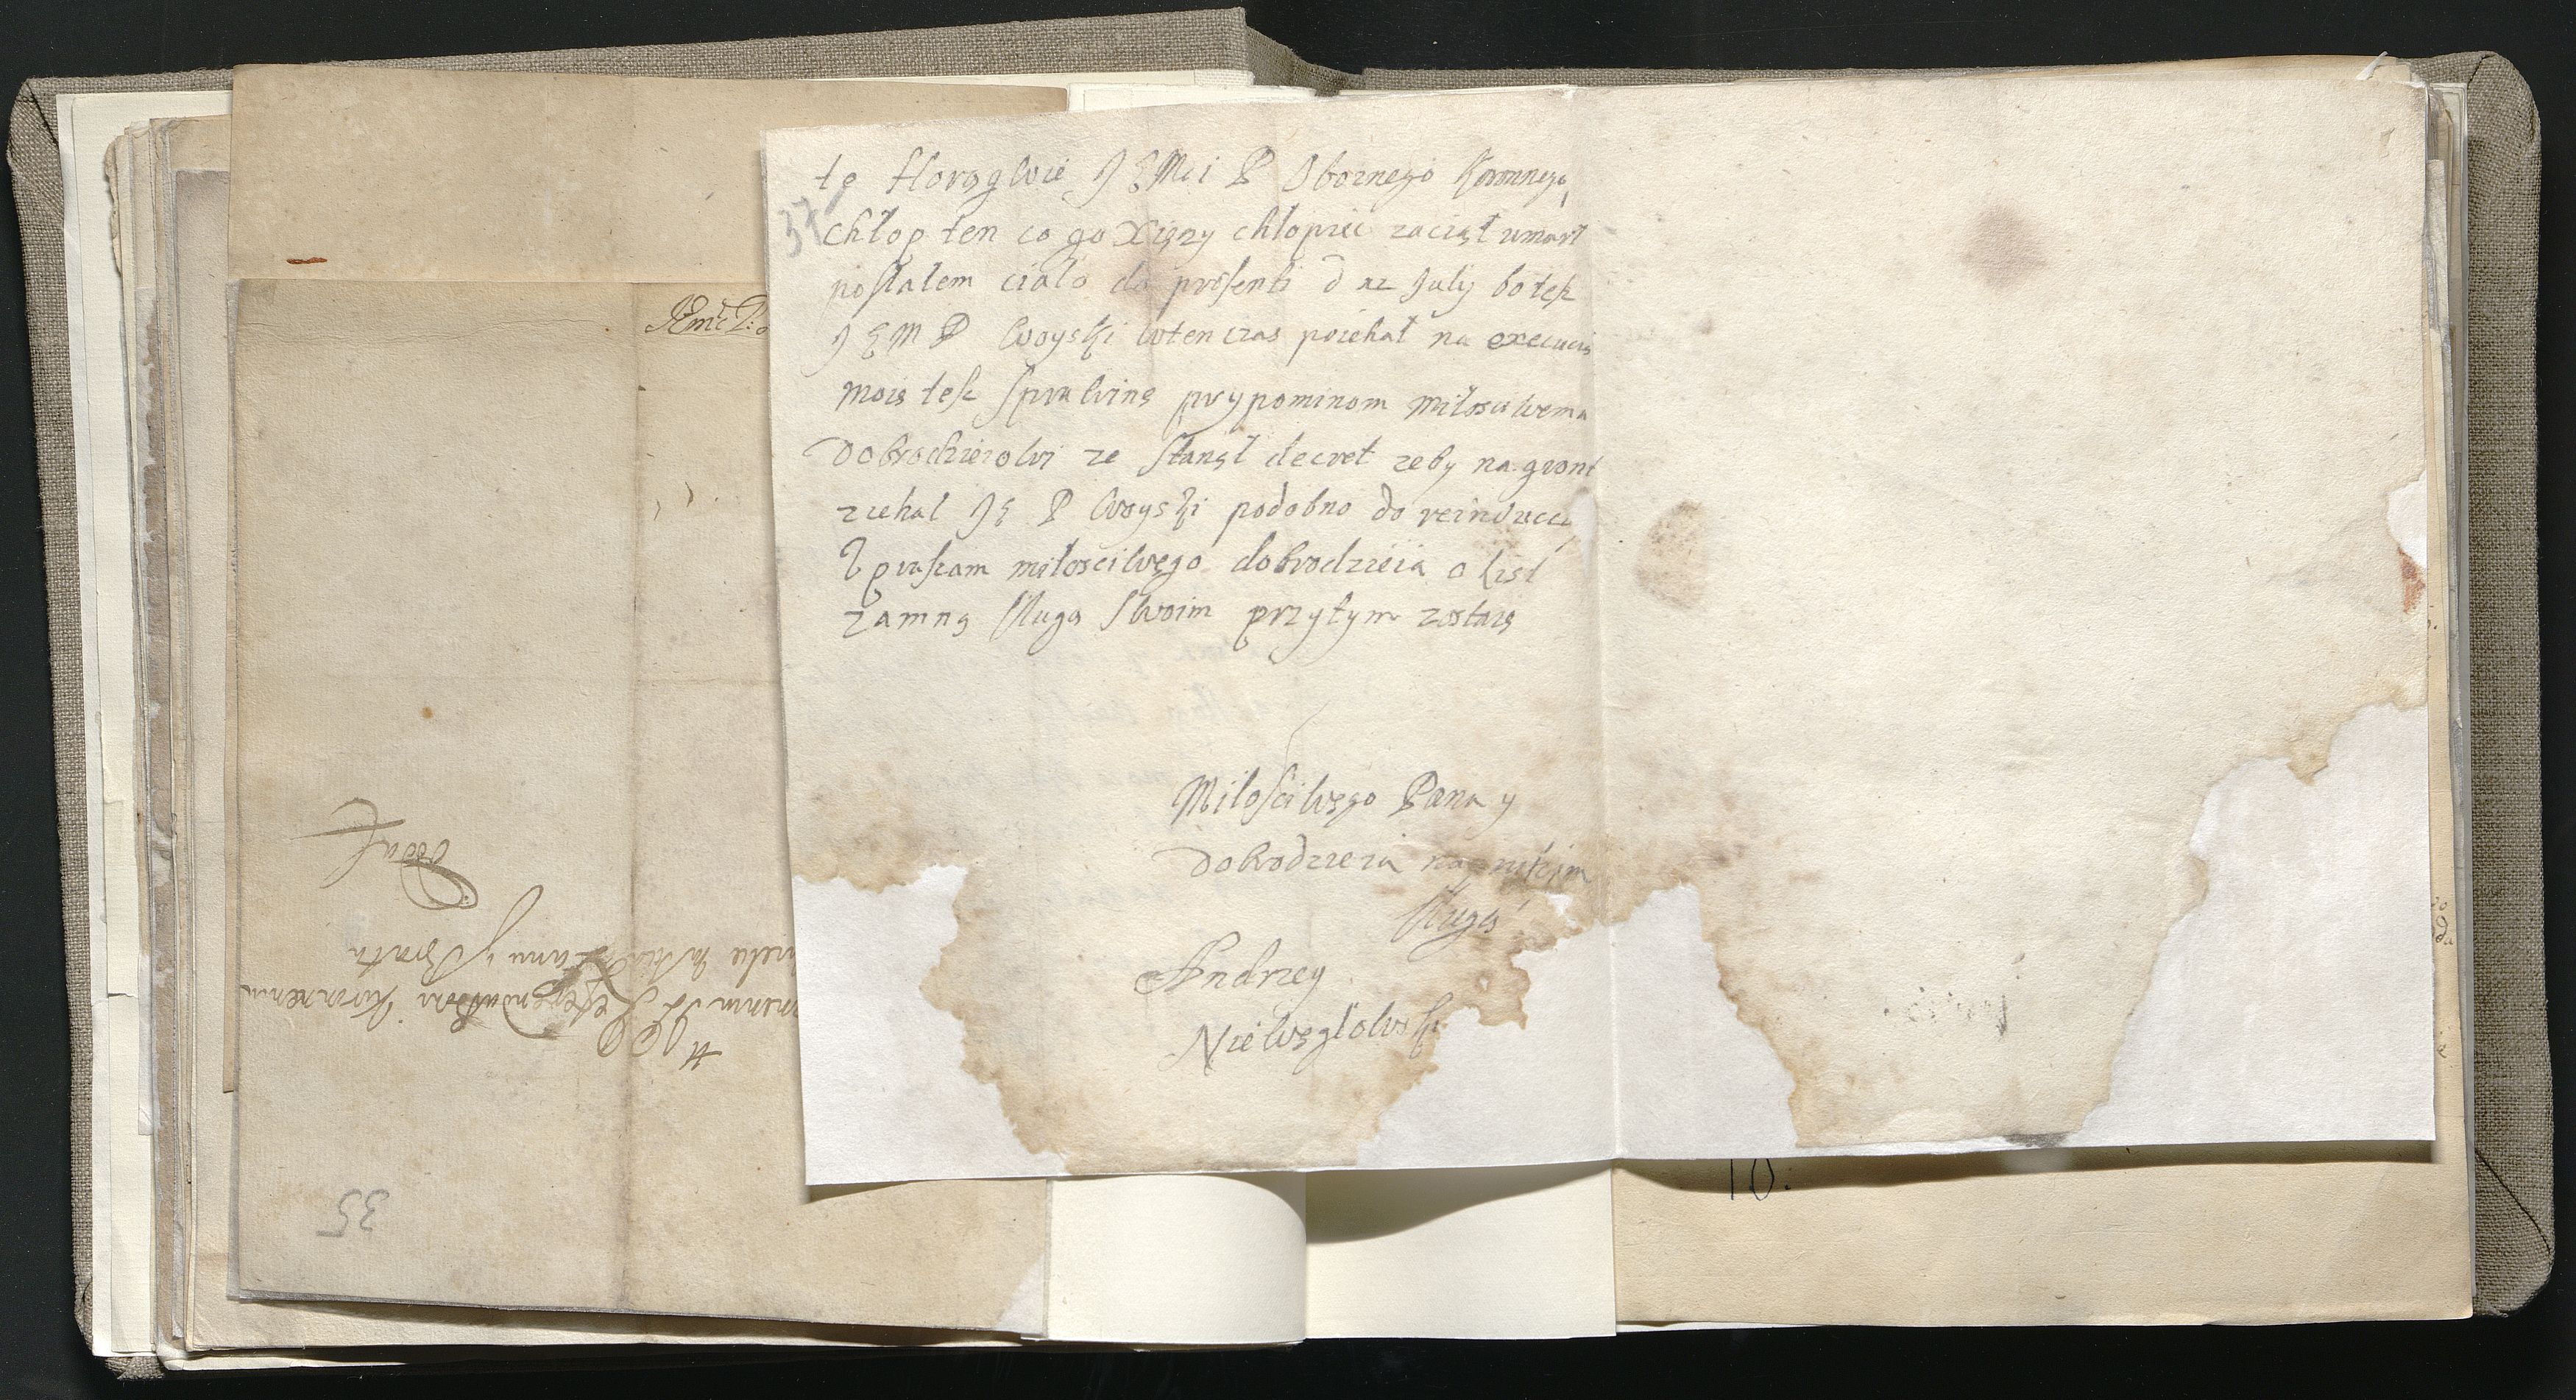 tę Horągwie JEMci P Obornego Koronnego
37
chłop ten co go Xięzy chłopiec zaciął umarł
posłałem ciało do prosenti d 12 July botesz
JEM P Woyski wten czas poiehał na execucią
moię tesz sprawinę przypominam miłosciwemu
Dobrodzieiowi ze stanął decret zeby na gront
ziehał JE P Woyski podobno do reinducey
Upraszam miłosciwego dobrodzieia o list
zamną sługą swoim przytym zostaię
Miłosciwego Pana y
Dobrodzieia
sługą
Andrzey
Niewęgłowski
JEmć P:o
Pana y Brata
Referendarzowi Koronnemu
35
10.